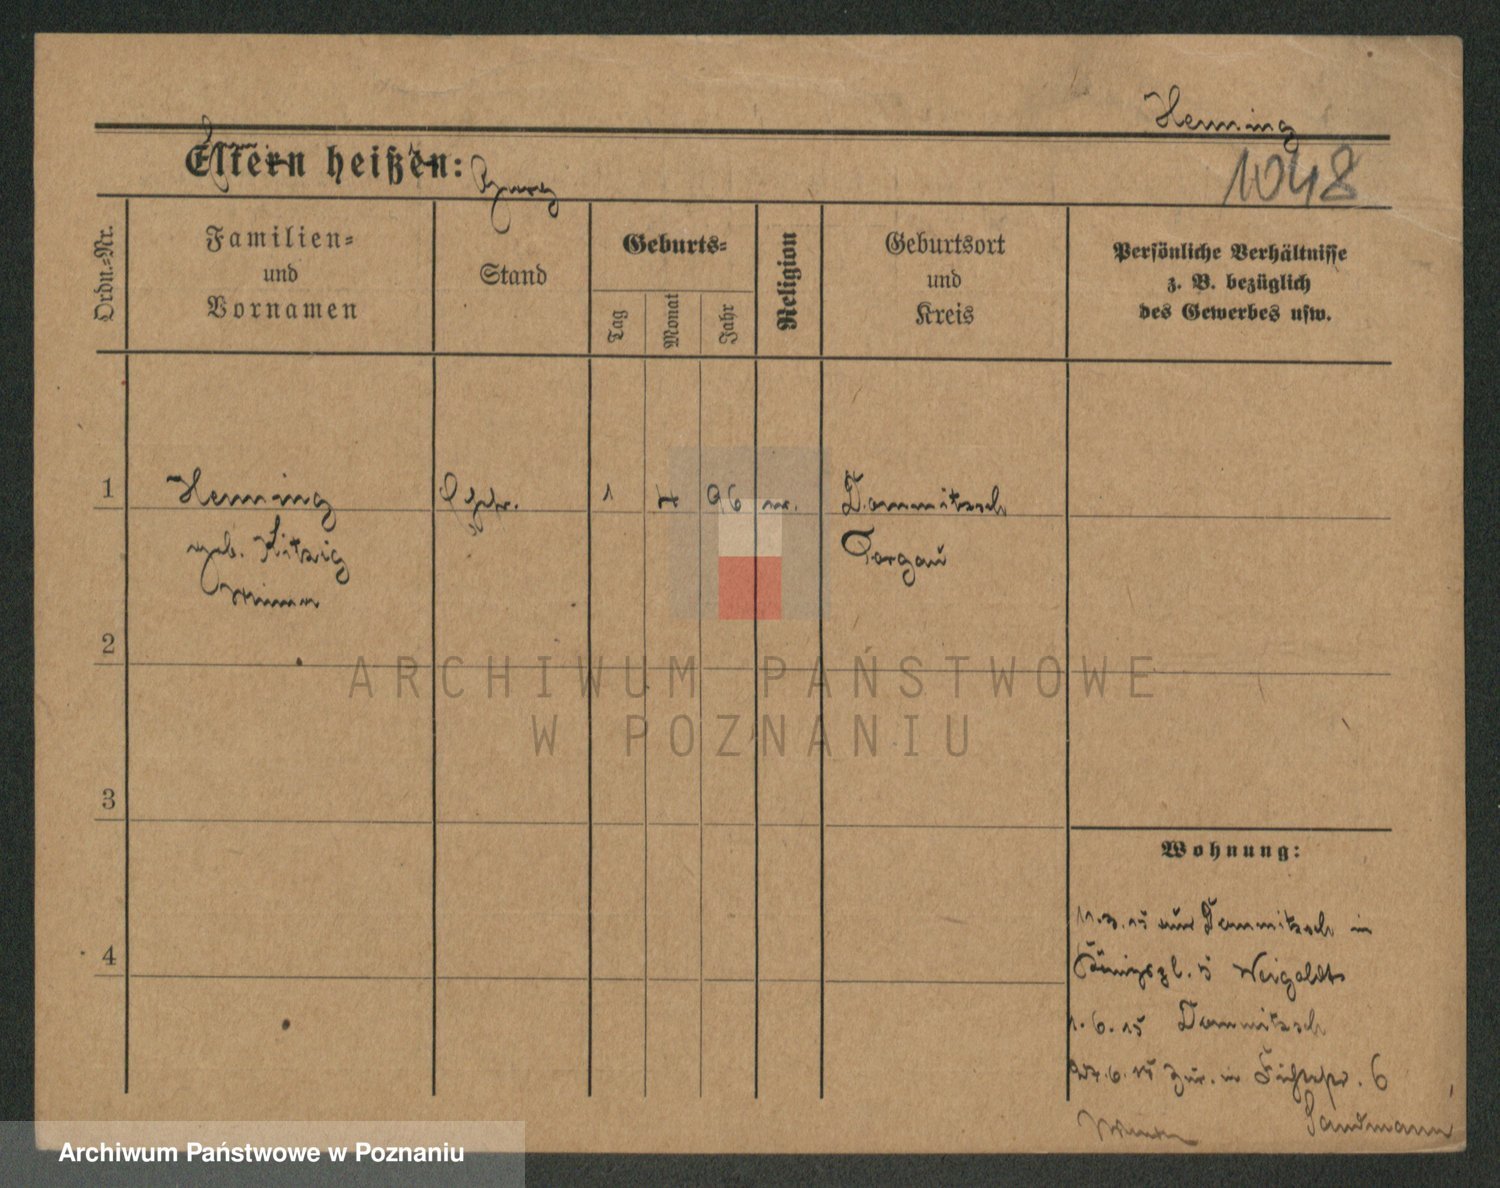 Henning
1048
Eltern heißen:
Ordn.=Nr.
Familien=
und
Vornamen
Stand
Geburts=
Tag
Monat
Jahr
Religion
Geburtsort
und
Kreis
Persönliche Verhältnisse
z. B. bezüglich
des Gewerbes usw.
1
Henning
geb. Kitzig
1
96
Dommitzsch
Torgau
2
3
4
Wohnung:
Dommitzsch in
Königspl. 5
1.6.15 Dommitzsch
in
6
Sandmann
ARCHIWUM PAŃSTWOWE
W POZNANIU
Archiwum Państwowe w Poznaniu